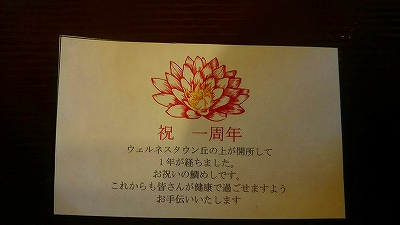 祝　一周年
ウェルネスタウン丘の上が開所して
１年が経ちました。
お祝いの鯛めしです。
これからも皆さんが健康で過ごせますよう
お手伝いいたします